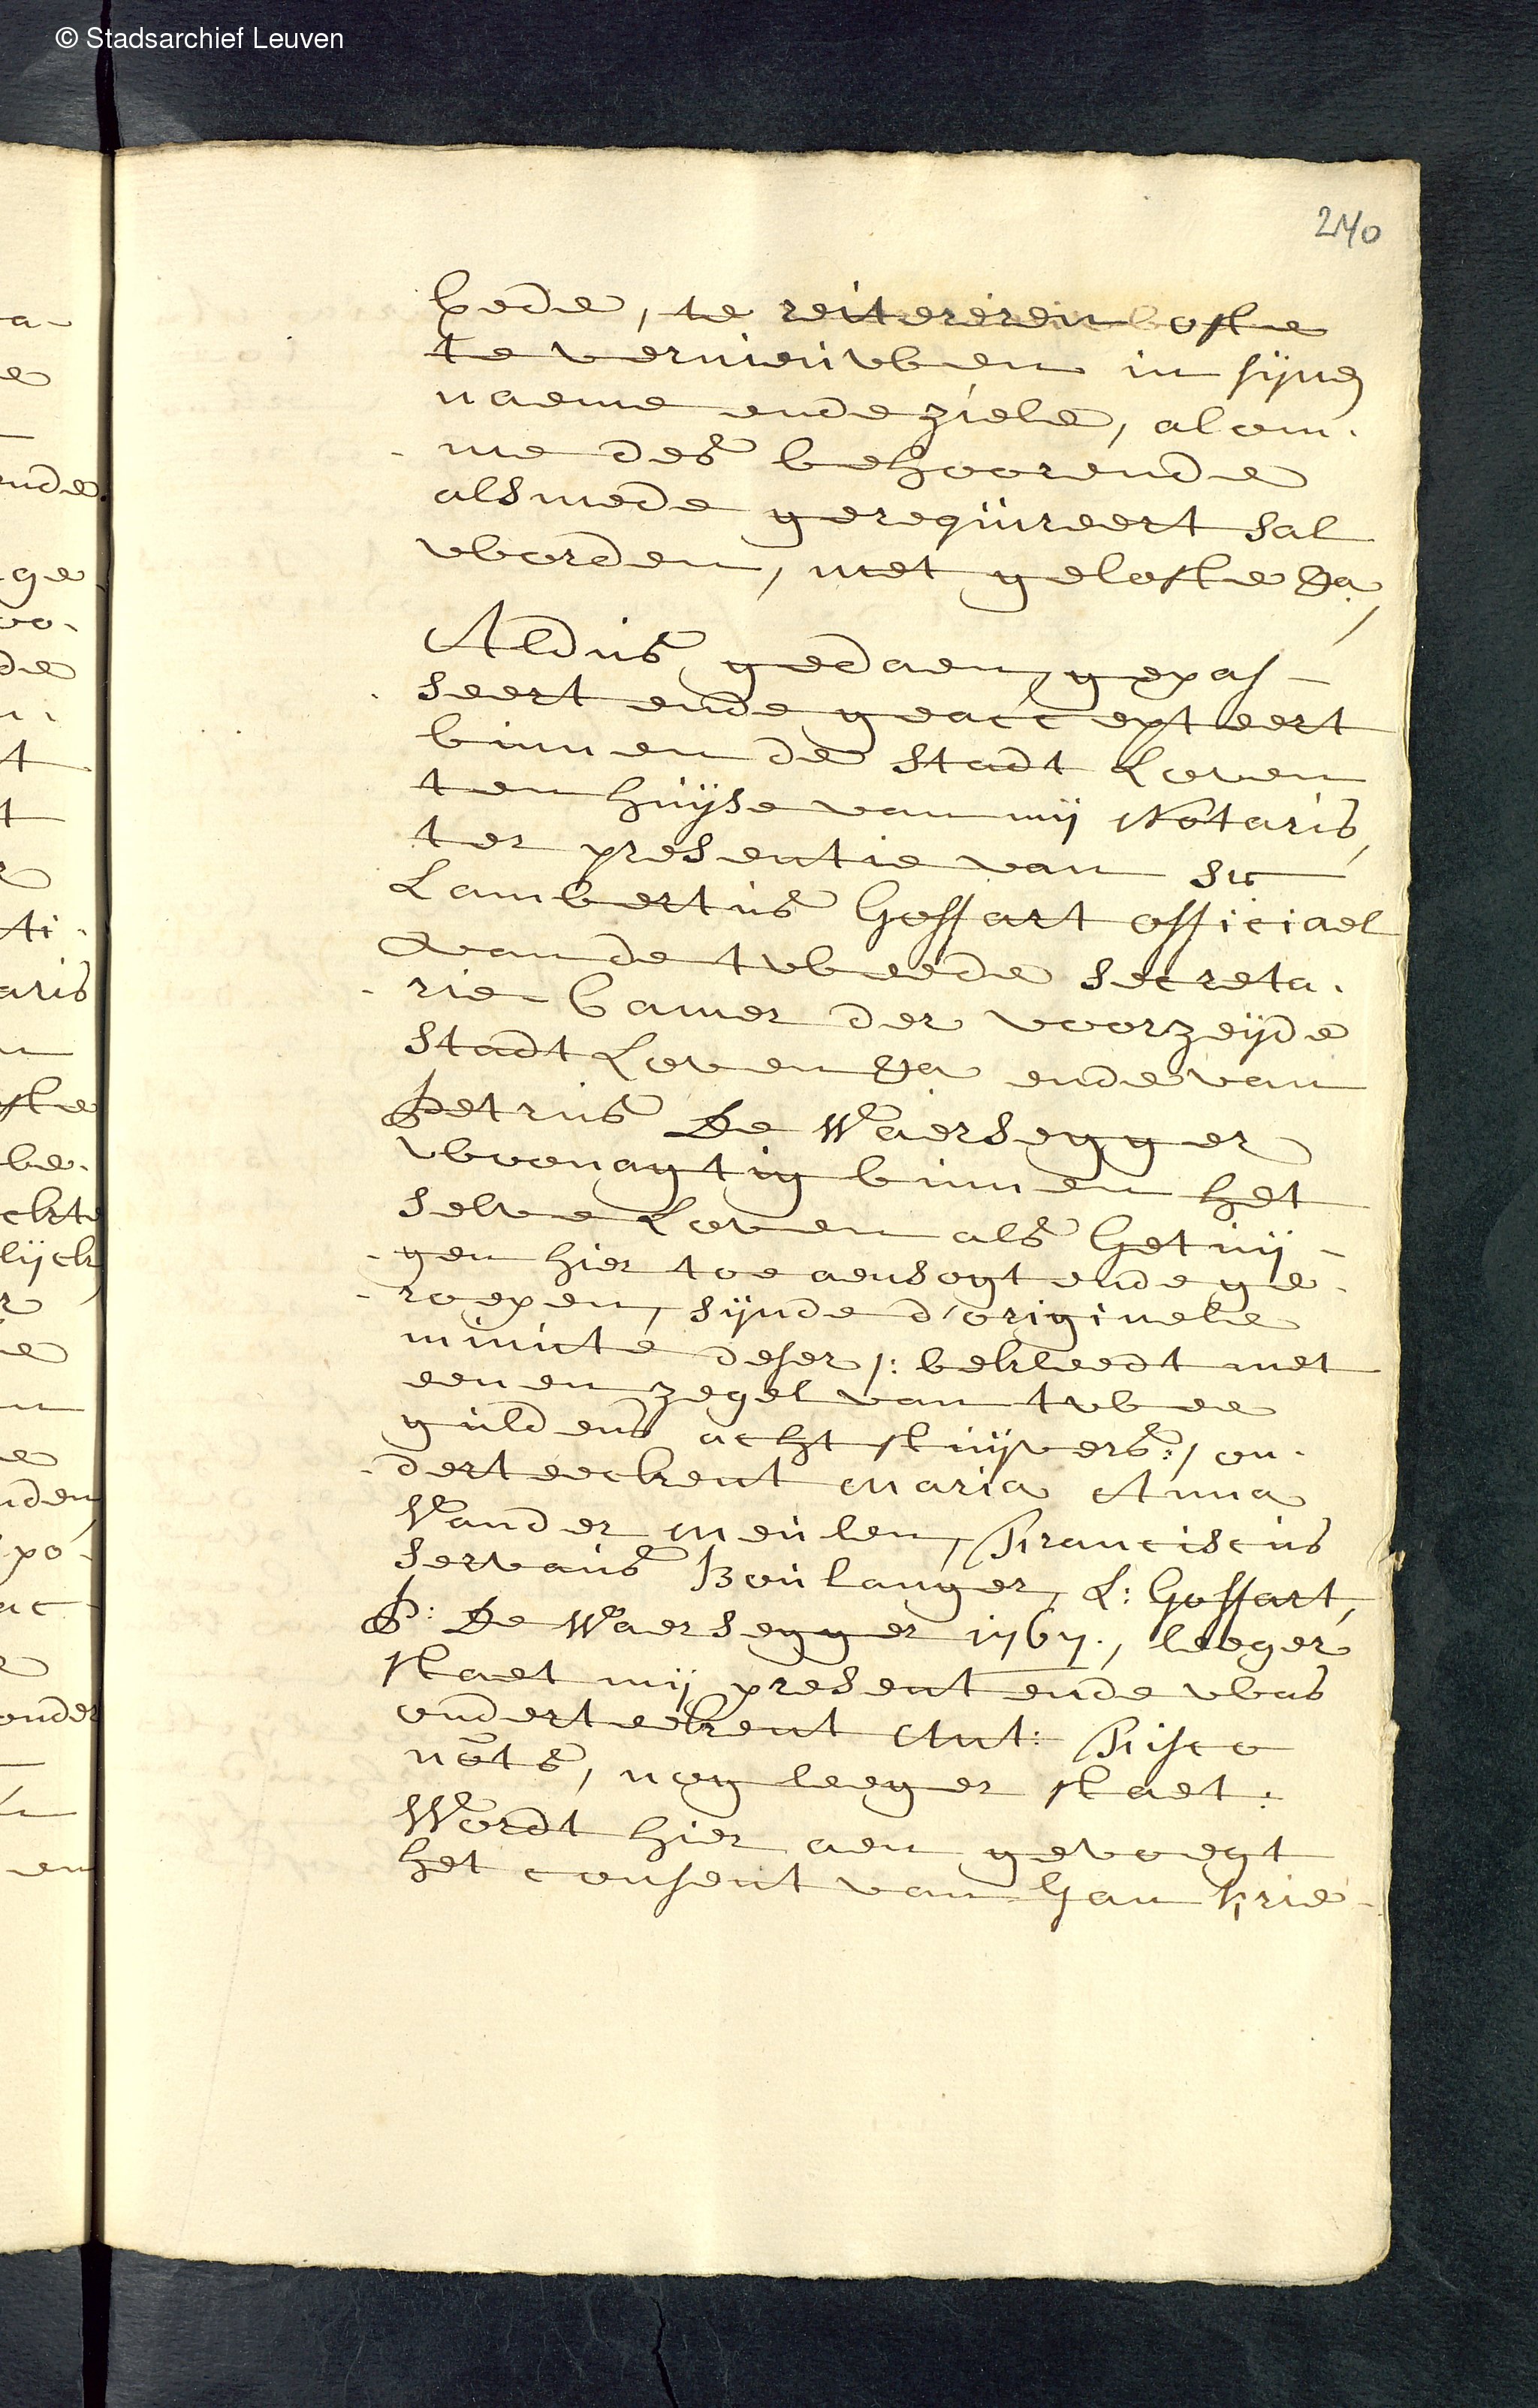 © Stadsarchief Leuven
240
bede, te reitereren ofte
te vernieuwen in sijnen
naeme ende ziele, alom-
-me des behoorende
alsmede gerequireert sal
worden, met gelofte &a,
Aldus gedaen, gepas-
-seert ende geaccepteert
binnen de stadt Loven
ten huijse van mij Notaris,
ter presentie van sr
Lambertus Gossart officiael
vande tweede secreta-
-rie Camer der voorzeijde
stadt Loven &a ende van
Petrus De Waersegger
woonagtig binnen het
selve Loven als Getuij-
-gen hier toe aensogt ende ge-
-roepen, sijnde d'originele
minute deser /: bekleedt met
eenen zegel van twee
guldens acht stuijvers :/ on-
-derteekent Maria Anna
Vander Meulen, Franciscus
Servaus Boulanger, L: Gossart,
P: De Waersegger 1767., leeger
staet mij present ende was
onderteekent Ant: Fisco
nots, nog leeger staet:
Wordt hier aen gevoegt
het consent van Jan Frie-
a-
e
ende
ge
vo-
de
n-
t
t
r
ti-
aris
n
fte
be-
ckte
lijck
r
e
n
e
nden
po-
ac-
onder
en